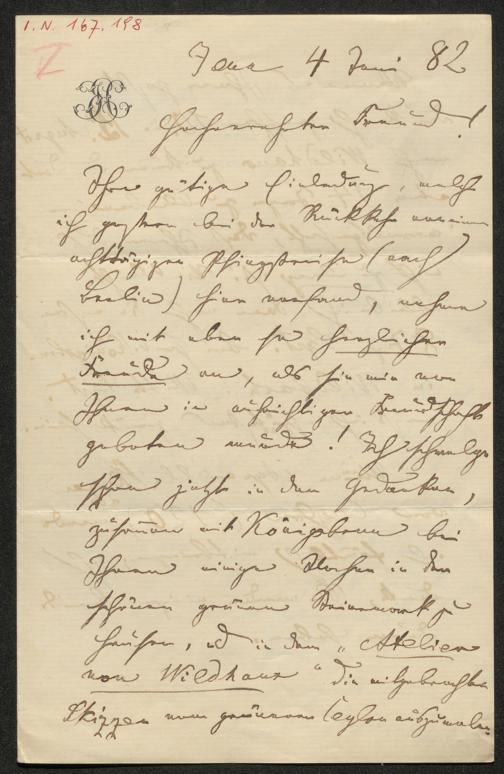 I. N. 167.198
I
EH
Jena 4 Juni 82
Hochverehrter Freund!
Ihre gütige Einladung, welche
ich gestern bei der Rückkehr von einer
achttägigen Pfingstreise (nach
Berlin) hier vorfand, nehme
ich mit eben so herzlicher
Freude an, als sie mir von
Ihnen in aufrichtiger Freundschaft
geboten wurde! Ich schwelge
schon jetzt in dem Gedanken,
zusammen mit Königsbrun bei
Ihnen einige Wochen in der
schönen grünen Steiermark zu
hausen, und in dem „Atelier
von Wildhaus" die mitgebrachten
Skizzen vom grünen Ceylon auszumalen